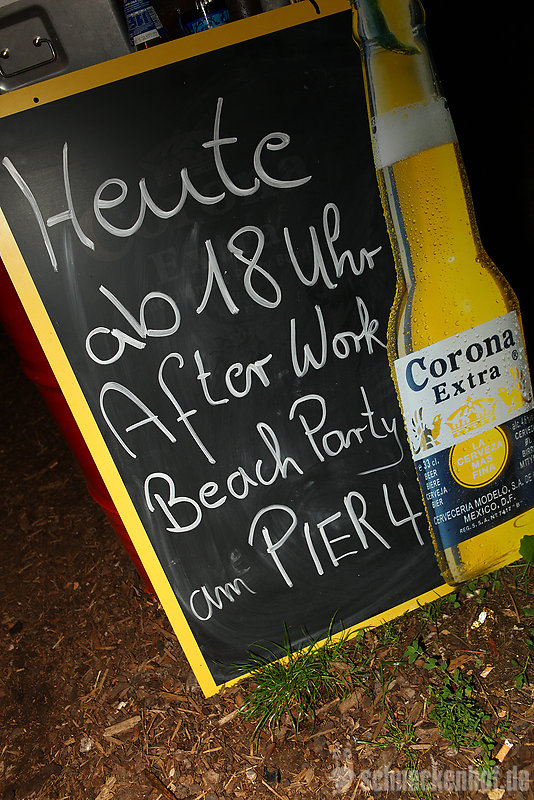 Heute
ab 18 Uhr
After Work
Beach Party
am PIER 4
Corona
Extra
LA
CERVEZA
MAS
FINA
33 cl.
BEER
BIERE
CERVEJA
BIER
CERVECERIA MODELO, S.A. DE
MEXICO, D.F.
schneckenhof.de